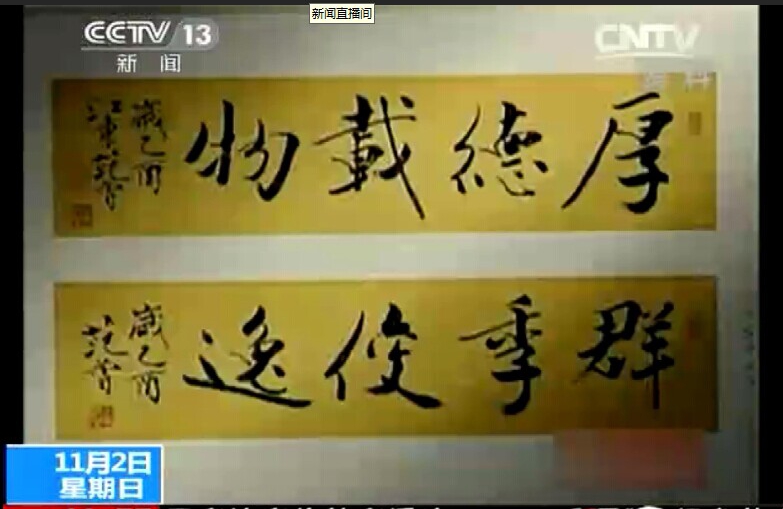 新闻直播间
CCTV 13
新闻
CNTV
资料
厚德載物
歲乙酉
江東范曾
群季俊逸
歲乙酉
范曾
11月2日
星期日